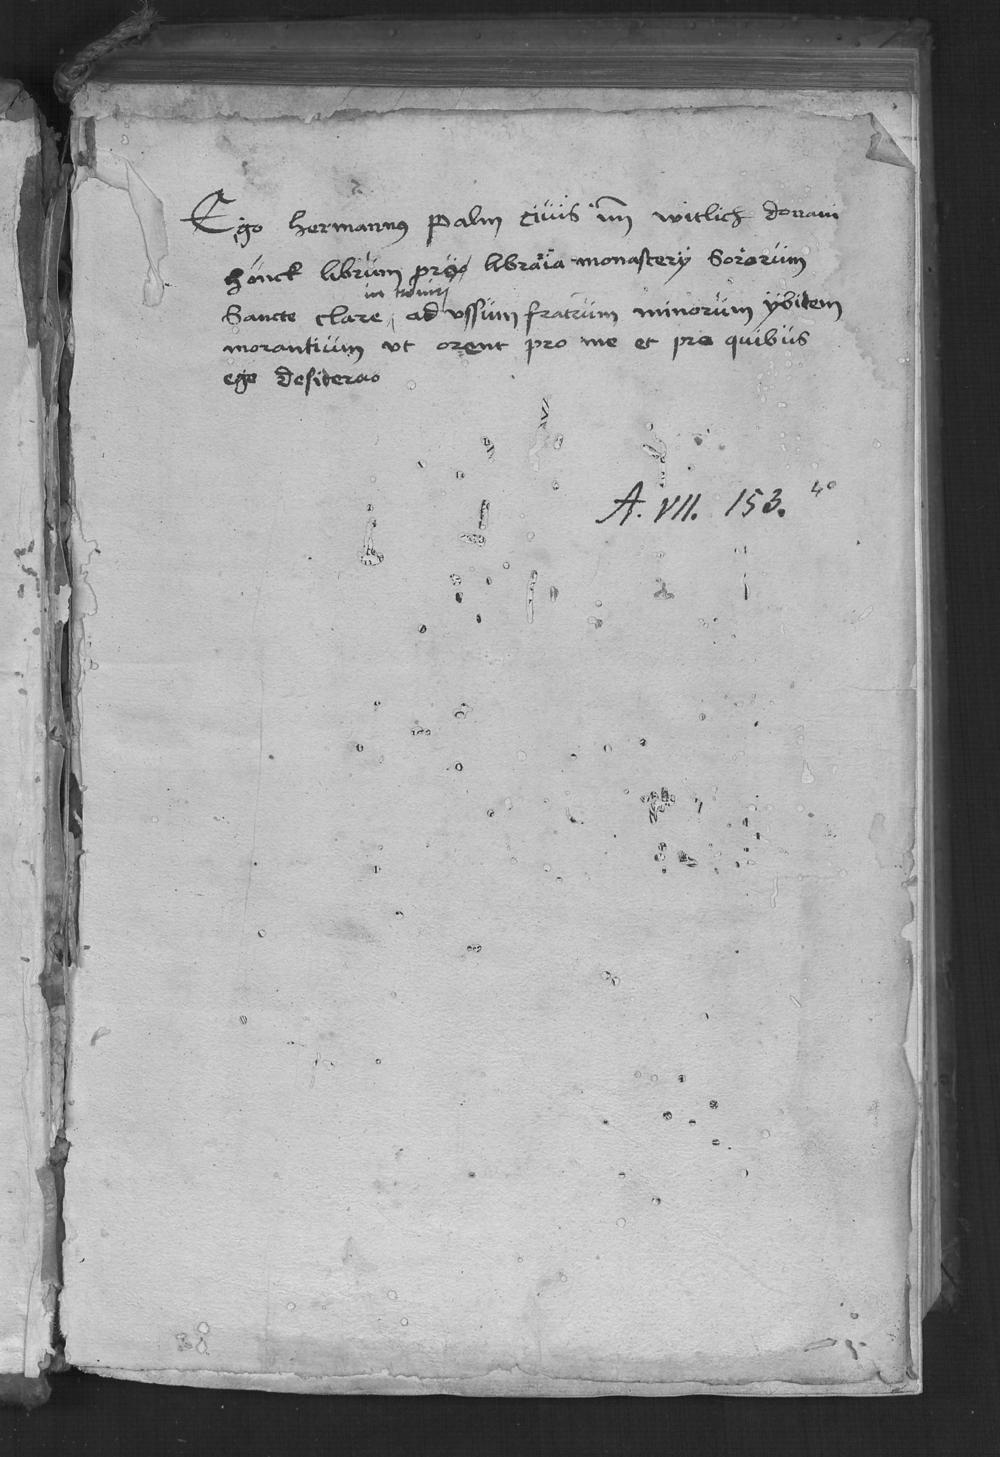 Ego hermannus palm civis im witlich donavi
hunck librum pro libraria monastery Sororum
in trevirj
Sancte clare, ad vssum fratrum minorum ybidem
morantium vt orent pro me et pro quibus
ego desiderao
A. VII. 153. 4o